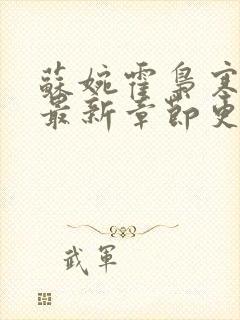 蘇婉霍梟寒
最新章節更
武軍